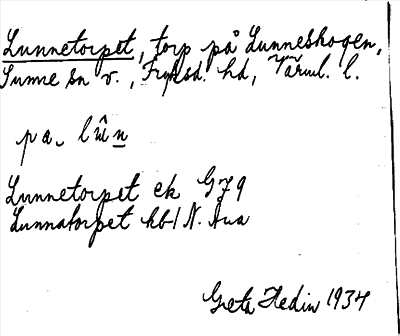 Lunnetorpet, torp på Lunneskogen,
Sunne sn v., Fryksd. hd, Värml. l.
pa. lûn
Lunnetorpet ek G79
Lunnatorpet kb1 N. Ana
Greta Hedin 1934